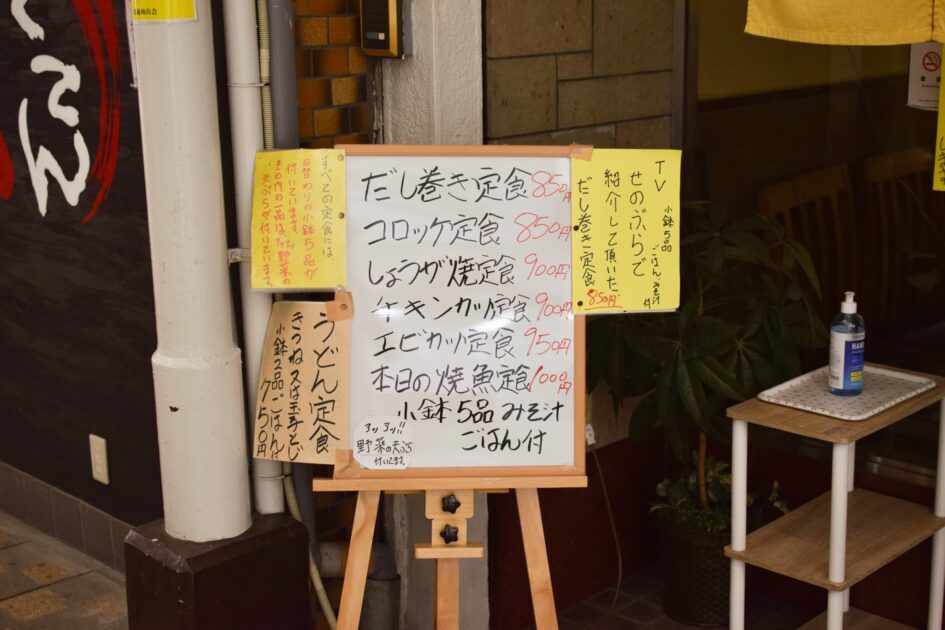 だし巻き定食 850円
コロッケ定食 850円
しょうが焼定食 900円
チキンカツ定食 900円
エビカツ定食 950円
本日の焼魚定食 1000円
小鉢5品 みそ汁
ごはん付
アツアツ!!
野菜の天ぷら
付いてます。
すべての定食には、
日替わりの小鉢5品が
付いています。
その内の一品はアツアツ野菜の
天ぷらが付いています。
うどん定食
きつね又は玉子とじ
小鉢2品ごはん付
750円
TV
せのぶらで
紹介して頂いた
だし巻き定食
小鉢5品
ごはん、みそ汁付
850円
HAND